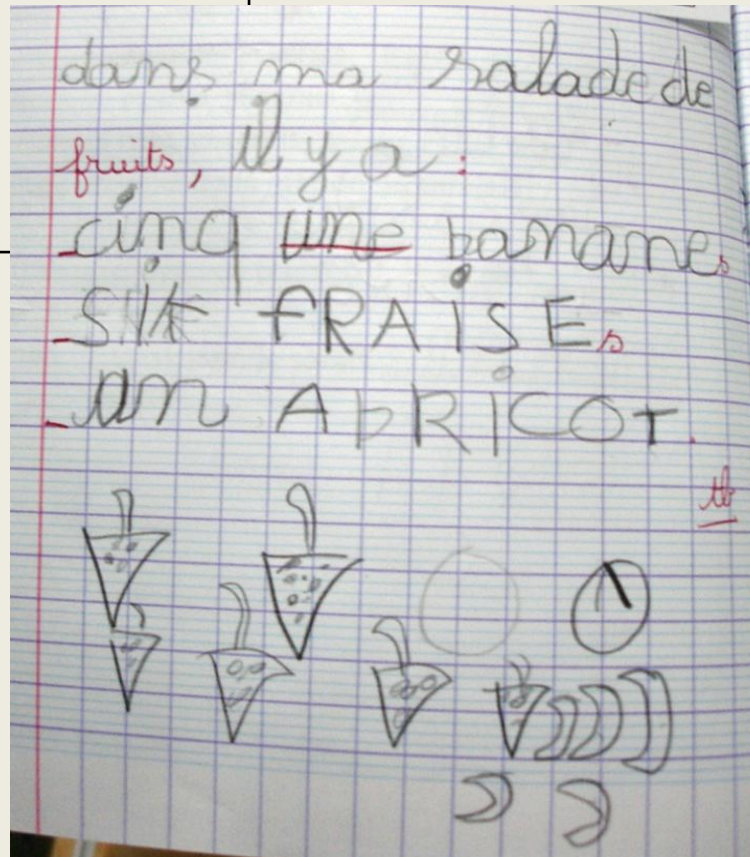 dans ma salade de
fruits, il y a :
- cinq une bananes
- SIX fRAiSEs
- un AbRiCOT.
tb